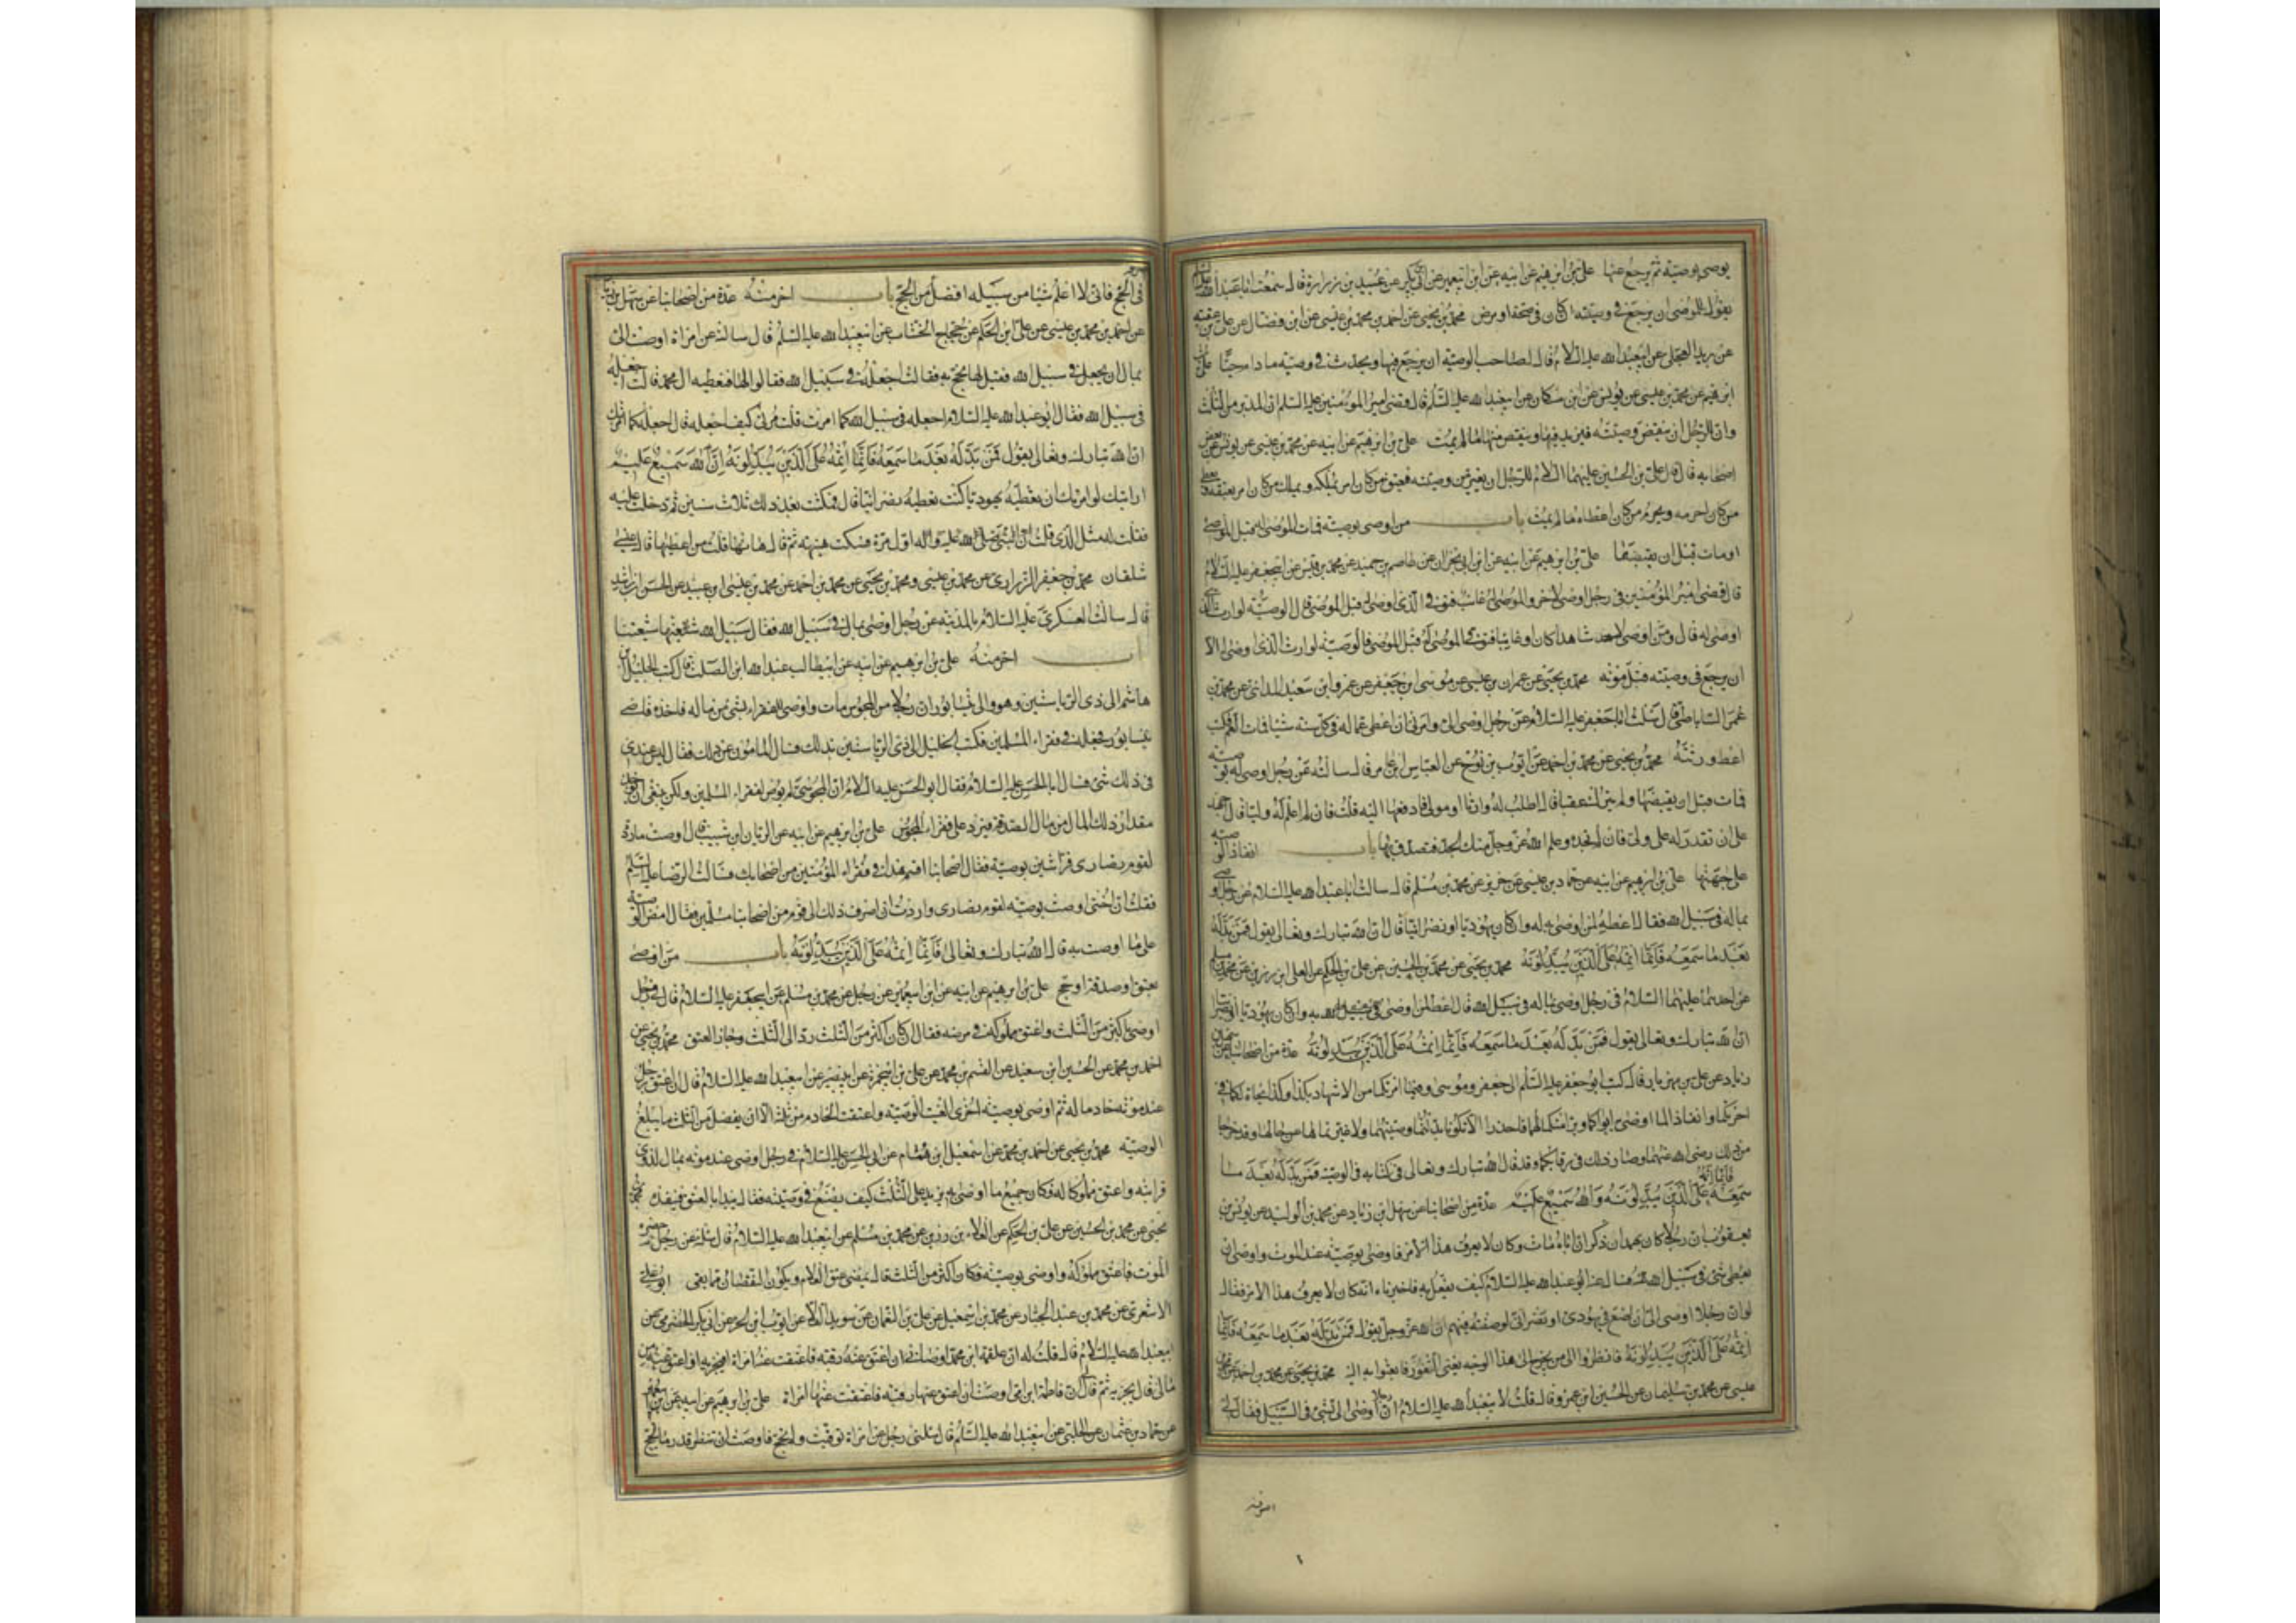 يوصى بوصيته ثم يرجع عنها علي بن ابرهيم عن ابيه عن ابن ابي عمير عن بكير عن عبيد بن زرارة قال سمعت ابا عبد الله
يقول للموصي ان يرجع في وصيته ان كان في صحة او مرض محمد بن يحيى عن احمد بن محمد بن عيسى عن ابن فضال عن علي بن عقبة
عن بريد العجلي عن ابيعبد الله عليه السلام قال لصاحب الوصية ان يرجع فيها ويحدث في وصيته ما دام حيا علي بن
ابرهيم عن محمد بن عيسى عن يونس عن ابن مسكان عن ابيعبد الله عليه السلم قال قضى امير المؤمنين عليه السلم ان المدبر من الثلث
وان للرجل ان ينقض وصيته فيزيد فيها وينقص منها ما لم يمت علي بن ابرهيم عن ابيه عن محمد بن عيسى عن يونس عن بعض
اصحابه قال قال علي بن الحسين عليهما السلام للرجل ان يغير من وصيته فيعتق من كان امر بملكه ويملك من كان امر بعتقه ويعطي
من كان احرمه ويحرم من كان اعطاه ما لم يمت باب من اوصى بوصية فمات الموصى له قبل الموصي
او مات قبل ان يقبضها علي بن ابرهيم عن ابيه عن ابن ابي نجران عن عاصم بن حميد عن محمد بن قيس عن ابيجعفر عليه السلام
قال قضى امير المؤمنين في رجل اوصى لاخر والموصى له غائب فتوفي الذي اوصى له قبل الموصي قال الوصية لوارث الذي
اوصى له قال ومن اوصى لاحد شاهدا كان او غايبا فتوفي الموصى له قبل الموصي فالوصية لوارث الذي اوصى له الا
ان يرجع في وصيته قبل موته محمد بن يحيى عن عمران بن موسى عن موسى ابن جعفر عن عمرو ابن سعيد المدائني عن محمد بن
عمر الساباطي قال سئلت ابا جعفر عليه السلام عن رجل اوصى الي وامرني ان اعطي عما له في كل سنة شيئا فمات العم فكتب
اعط ورثته محمد بن يحيى عن محمد بن احمد عن ايوب بن نوح عن العباس ابن عامر قال سالته عن رجل اوصى له بوصية
فمات قبل ان يقبضها ولم يترك عقبا قال اطلب له وارثا او مولى فادفعها اليه قلت فان لم اعلم له وليا قال اجهد
على ان تقدر له على ولي فان لم تجده وعلم الله عز وجل منك الجد فتصدق بها باب انفاذ الوصية
على جهتها علي بن ابرهيم عن ابيه عن حماد بن عيسى عن حريز عن محمد بن مسلم قال سالت ابا عبد الله عليه السلام عن رجل اوصى
بماله في سبيل الله فقال اعطه لمن اوصى به له وان كان يهوديا او نصرانيا قال ان الله تبارك وتعالى يقول فمن بدله
بعد ما سمعه فانما اثمه على الذين يبدلونه محمد بن يحيى عن محمد بن الحسين عن علي بن الحكم عن العلا ابن رزين عن محمد بن مسلم
عن احدهما عليهما السلام في رجل اوصى بماله في سبيل الله قال اعط لمن اوصى له به وان كان يهوديا او نصرانيا
ان الله تبارك وتعالى يقول فمن بدله بعد ما سمعه فانما اثمه على الذين يبدلونه عدة من اصحابنا عن سهل بن
زياد عن علي بن مهزيار قال كتب ابو جعفر عليه السلم الى جعفر وموسى وفيما امرتكما من الاشهاد بكذا وكذا نجاة لكما في
اخرتكما وانفاذ لما اوصى به ابواكما وبر منكما لهما فاحذرا الا تكونا بدلتما وصيتهما ولا غيرتماها عن حالها وقد خرجا
من ذلك رضي الله عنهما وصار ذلك في رقابكما وقد قال الله تبارك وتعالى في كتابه في الوصية فمن بدله بعد ما
سمعه فانما اثمه على الذين يبدلونه والله سميع عليم عدة من اصحابنا عن سهل ابن زياد عن محمد بن الوليد عن يونس بن
يعقوب ان رجلا كان بهمدان ذكر ان اباه مات وكان لا يعرف هذا الامر فاوصى بوصيته عند الموت واوصى ان
يعطى شئ في سبيل الله فسئل عنه ابو عبد الله عليه السلام كيف يفعل به فاخبرناه انه كان لا يعرف هذا الامر فقال
لو ان رجلا اوصى الي ان اضع في يهودي او نصراني لوضعته فيهم ان الله عز وجل يقول فمن بدله بعد ما سمعه فانما
اثمه على الذين يبدلونه فانظروا الى من يخرج الى هذا الوجه يعني الثغور فابعثوا به اليه محمد بن يحيى عن محمد بن احمد عن محمد بن
عيسى عن محمد بن سليمان عن الحسين ابن عمر وقال قلت لابيعبد الله عليه السلام ان رجلا اوصى الي بشئ في السبيل فقال لي
اصرفه
في الحج فاني لا اعلم شيئا من سبيله افضل من الحج باب اخر منه عدة من اصحابنا عن سهل بن زياد
عن احمد بن محمد بن عيسى عن علي ابن الحكم عن حجاج الخشاب عن ابيعبد الله عليه السلم قال سالته عن امراة اوصت الي
بمال ان يجعل في سبيل الله فقيل لها نحج به فقالت اجعله في سبيل الله فقالوا لها فنعطيه ال محمد قالت اجعله
في سبيل الله فقال ابو عبد الله عليه السلام اجعله في سبيل الله كما امرت قلت مرني كيف اجعله قال اجعله كما امرتك
ان الله تبارك وتعالى يقول فمن بدله بعد ما سمعه فانما اثمه على الذين يبدلونه ان الله سميع عليم
ارايتك لو امرتك ان تعطيه يهوديا كنت تعطيه نصرانيا قال فمكثت بعد ذلك ثلاث سنين ثم دخلت عليه
فقلت له مثل الذي قلت اول مرة فسكت هنيهة ثم قال هاتها قلت من اعطيها قال عيسى
شلقان محمد بن جعفر الرزاري عن محمد بن عيسى ومحمد بن يحيى عن محمد بن احمد عن محمد بن عيسى ابن عبيد عن الحسن ابن راشد
قال سالت العسكري عليه السلام بالمدينة عن رجل اوصى بمال في سبيل الله فقال سبيل الله شيعتنا
باب اخر منه علي بن ابرهيم عن ابيه عن ابيطالب عبد الله ابن الصلت قال كتب الخليل بن
هاشم الى ذي الرياستين وهو والي نيسابور ان رجلا من المجوس مات واوصى للفقراء بشئ من ماله فاخذه قاضي
نيسابور فجعله في فقراء المسلمين فكتب الخليل الى ذي الرياستين بذلك فسال المامون عن ذلك فقال ليس عندي
في ذلك شئ فسال ابا الحسن عليه السلام فقال ابو الحسن عليه السلام ان المجوسي لم يوص لفقراء المسلمين ولكن ينبغي ان يؤخذ
مقدار ذلك المال من مال الصدقة فيرد على فقراء المجوس علي بن ابرهيم عن ابيه عن الريان ابن شبيب قال اوصت ماردة
لقوم نصارى فراشين بوصية فقال اصحابنا اقسم هذا في فقراء المؤمنين من اصحابك فسالت الرضا عليه السلم
فقلت ان اختي اوصت بوصية لقوم نصارى واردت ان اصرف ذلك الى قوم من اصحابنا مسلمين فقال امض الوصية
على ما اوصت به قال الله تبارك وتعالى فانما اثمه على الذين يبدلونه باب من اوصى
بعتق او صدقة او حج علي بن ابرهيم عن ابيه عن ابن ابيعمير عن رجل عن محمد بن مسلم عن ابيجعفر عليه السلام قال في رجل
اوصى باكثر من الثلث واعتق مملوكه في مرضه فقال ان كان اكثر من الثلث رد الى الثلث وجاز العتق محمد بن يحيى عن
احمد بن محمد عن الحسين ابن سعيد عن القسم بن محمد عن علي بن ابيحمزة عن ابيبصير عن ابيعبد الله عليه السلام قال ان اعتق رجل
عند موته خادما له ثم اوصى بوصية اخرى الغيت الوصية واعتقت الخادم من ثلثه الا ان يفضل من الثلث ما يبلغ
الوصية محمد بن يحيى عن احمد بن محمد عن اسمعيل ابن همام عن ابي الحسن عليه السلام في رجل اوصى عند موته بمال لذوي
قرابته واعتق مملوكا له فكان جميع ما اوصى به يزيد على الثلث كيف يصنع في وصيته فقال يبدا بالعتق فينفذ محمد بن
يحيى عن محمد بن الحسين عن علي بن الحكم عن العلاء بن رزين عن محمد بن مسلم عن ابيعبد الله عليه السلام قال سئلته عن رجل حضره
الموت فاعتق مملوكه واوصى بوصية فكان اكثر من الثلث قال يمضى عتق الغلام ويكون النقصان فيما بقي ابو علي
الاشعري عن محمد بن عبد الجبار عن محمد بن اسمعيل عن علي بن النعمان عن سويد القلا عن ايوب ابن الحر عن ابي بكر الحضرمي عن
ابيعبد الله عليه السلام قال قلت له ان علقمة ابن محمد اوصاني ان اعتق عنه رقبة فاعتقت عنه امراة افيجزيه او اعتق عنه من
مالي قال يجزيه ثم قال ان فاطمة ام ابني اوصت ان اعتق عنها رقبة فاعتقت عنها امراة علي بن ابرهيم عن ابيه عن ابن ابيعمير
عن حماد بن عثمان عن الحلبي عن ابيعبد الله عليه السلم قال سئلني رجل عن امراة توفيت ولم تحج فاوصت ان ينظر قدر ما يحج